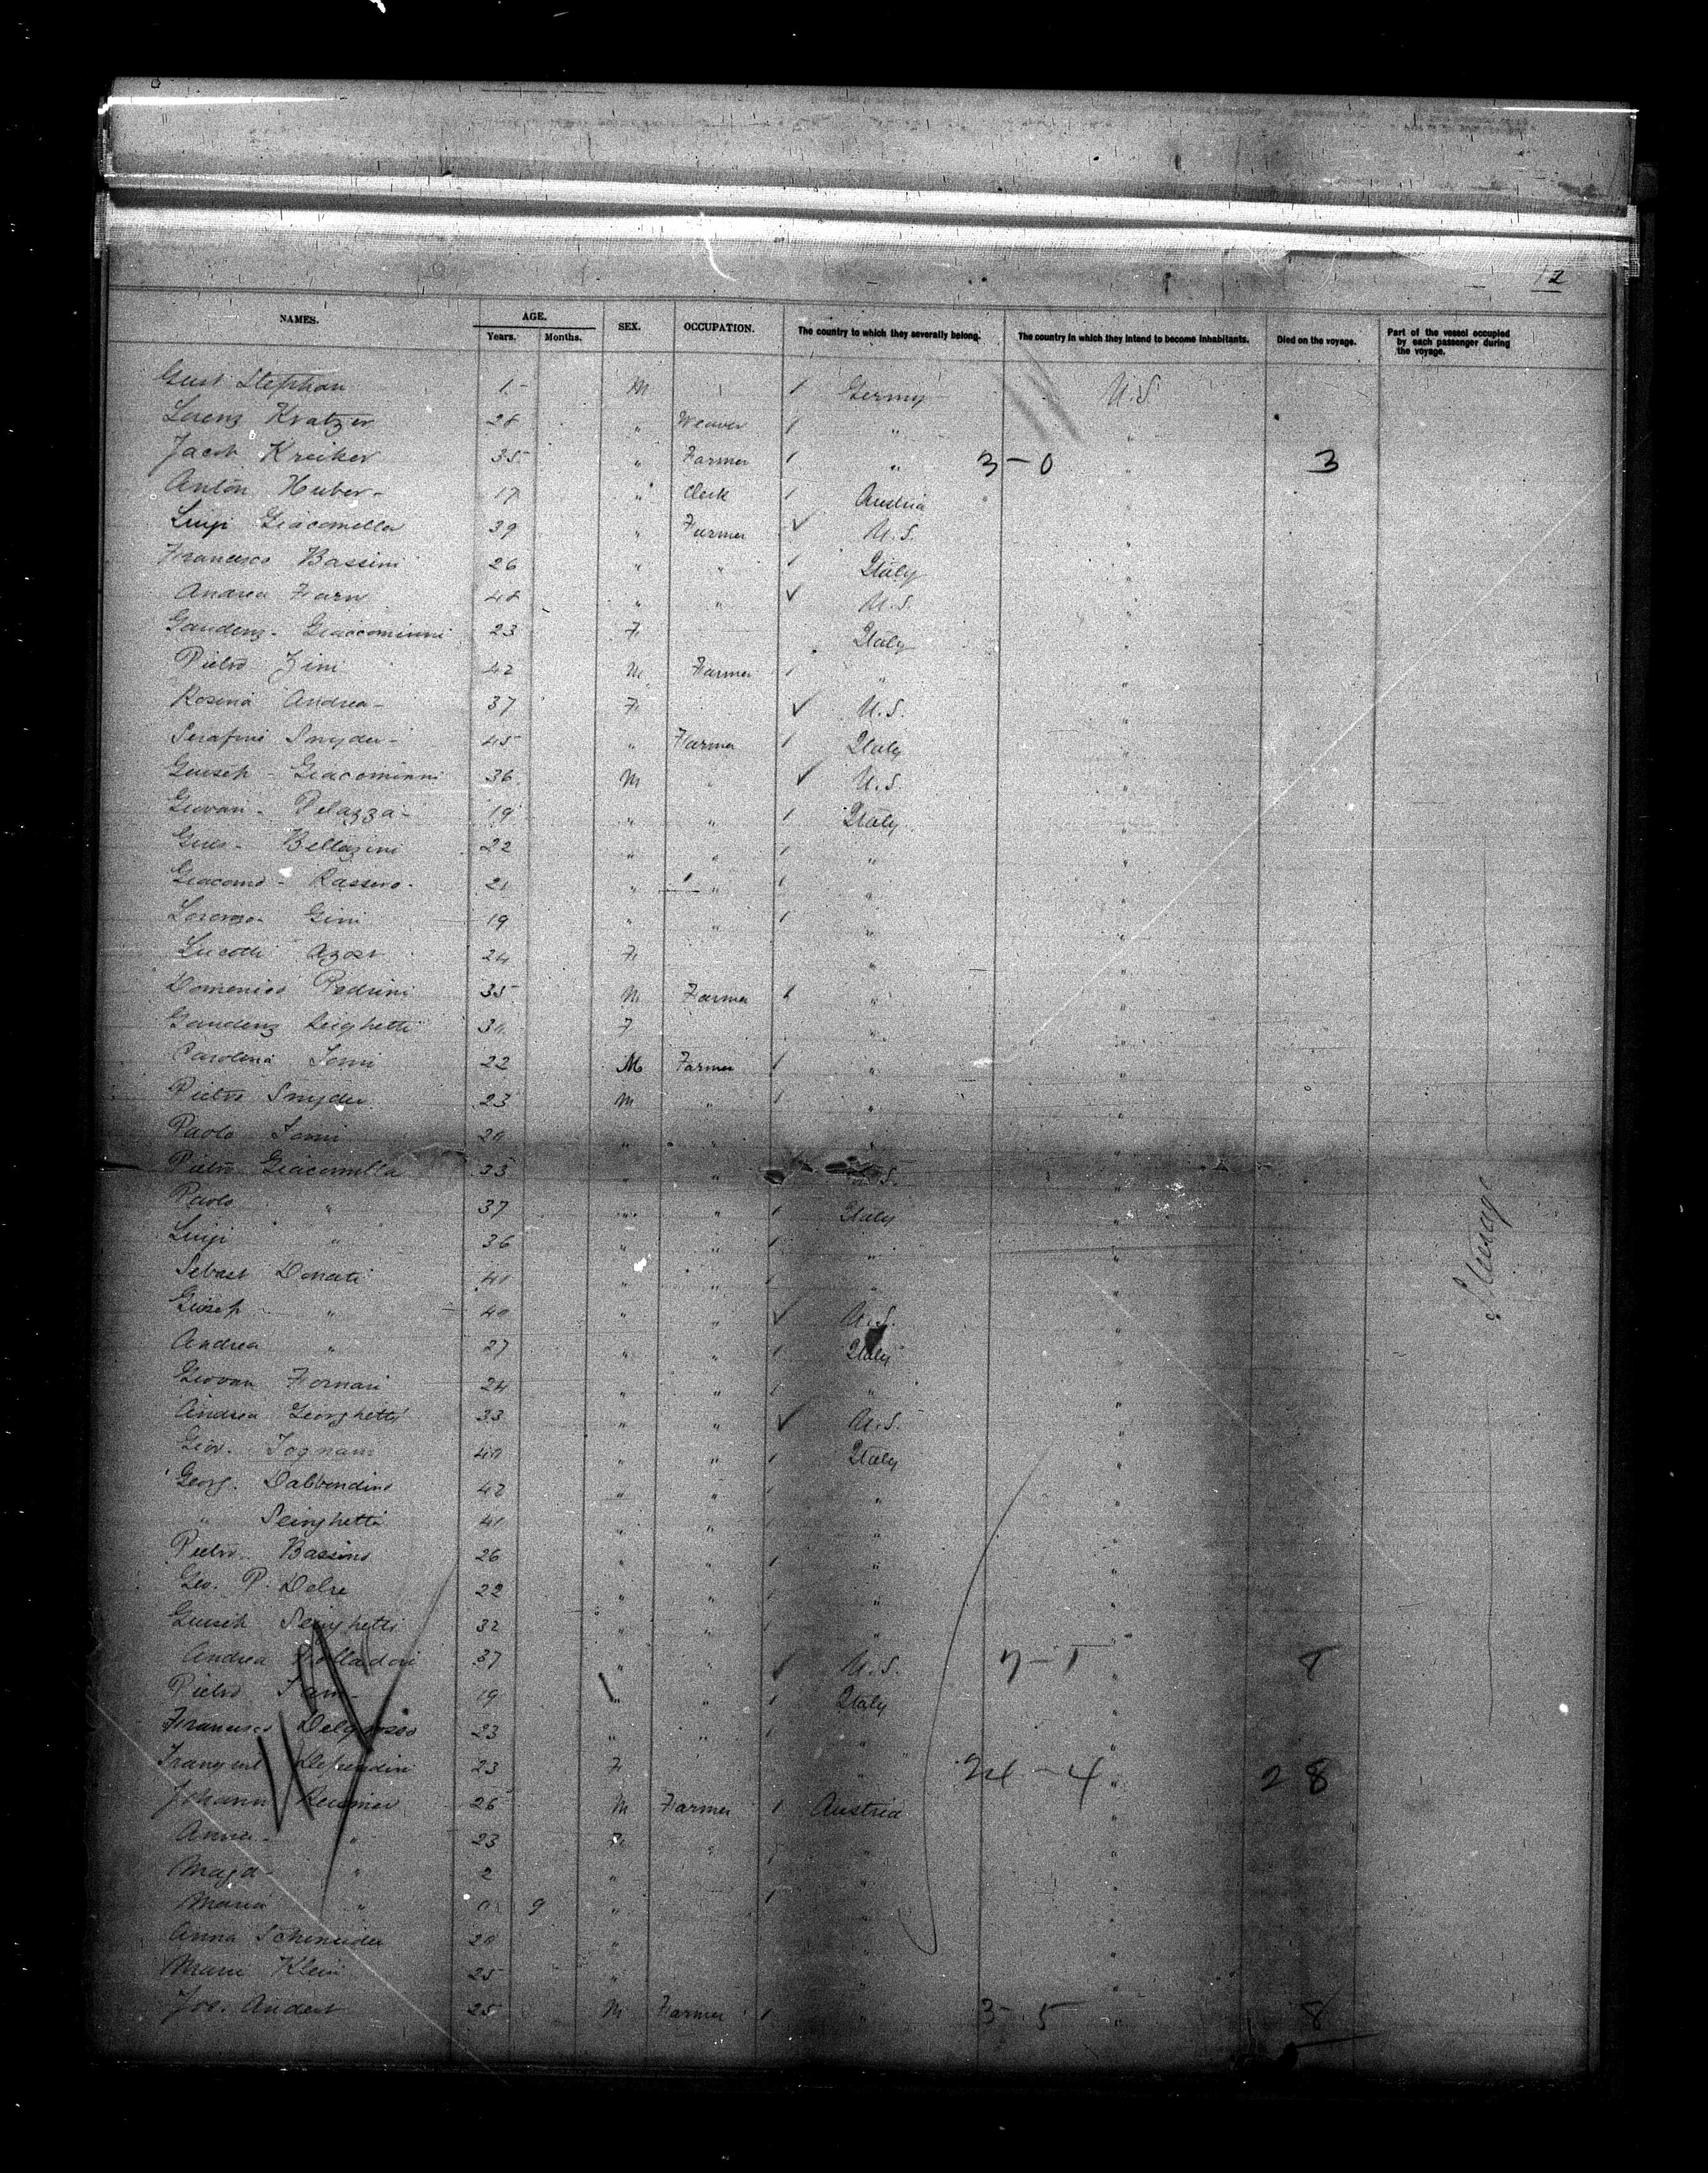 12
NAMES. AGE. SEX. OCCUPATION. The country to which they severally belong. The country in which they intend to become inhabitants. Died on the voyage. Part of the vessel occupied by each passenger during the voyage.
Years. Months.
Gust Stephan 1 M Germy U.S
Lorenz Kratzer 28 " Weaver "  "
Jacob Kreiker 35 " Farmer " 3-0 " 3
Anton Huber 17 " Clerk Austria
Luigi Giacomella 39 " Farmer U.S. "
Francesco Bassini 26 " " Italy "
Andrea Farn 48 " " U.S. "
Gaudenz Giaccominni 23 F Italy "
Pietro Zini 42 M Farmer " "
Rosina Andrea 37 F U.S. "
Serafini Snyder 45 " Farmer Italy "
Guiseh Giacominni 36 M " U.S. "
Giovan Pelazza 19 " " Italy "
Gius Bellazini 22 " " " "
Giacomo Rassero 21 " " " "
Lorenzo Gini 19 " " " "
Lucotti Agost 24 F " "
Domenico Pedrini 35 M Farmer " "
Gaudenz 30 F " "
Carolina Tomi 22 M Farmer " "
Pietro Snyder 23 M " " "
Paolo Tomi 20 " " " "
Pietro Giacomella 33 " " U.S. "
Paolo " 37 " " Italy "
Luigi " 36 " " " "
Sebast Donati 41 " " " Steerage
Giuseh " 40 " " U.S. "
Andrea " 27 " " Italy "
Giovan Fornari 24 " " " "
Andrea Georghetti 33 " " U.S. "
Giov. Tognani 40 " " Italy "
Georg. Dabbondino 42 " " " "
" 41 " " " "
Pietro Bassino 26 " " " "
Geo. P. Delre 22 " " " "
Guiseh 32 " " " "
Andrea 37 " " U.S. 7-1 " 8
Pietro 19 " " Italy "
Francesco Delgrosso 23 " " " "
23 F " 24-4 " 28
Johann 26 M Farmer Austria "
Anna " 23 F " "
Magd " 2 " " "
Maria " 0 9 " " "
Anna Schneider 20 " " "
Marie Klein 25 " " "
Jos. Andert 25 M Farmer " 3-5 " 8